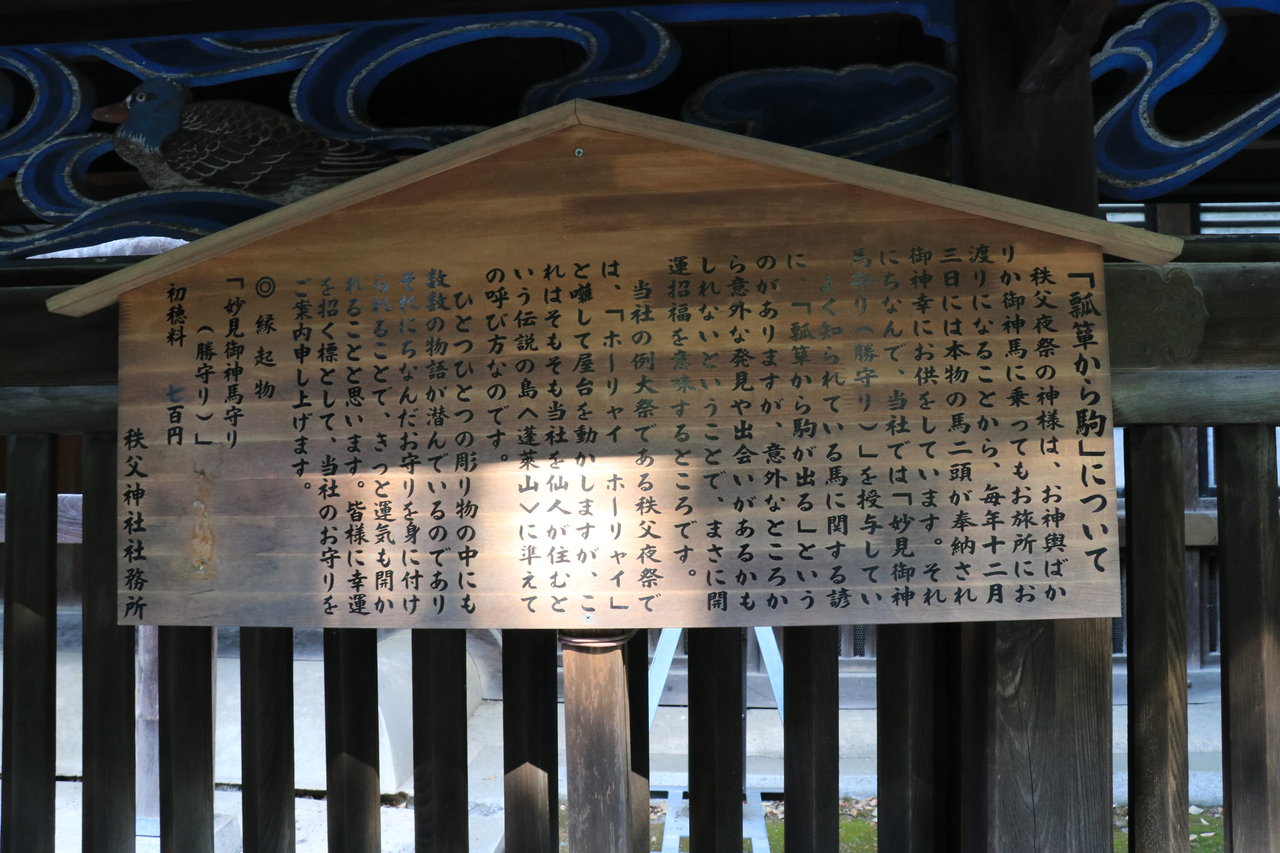 「瓢箪から駒」について
秩父夜祭の神様は、お神輿ばか
りか御神馬に乗ってもお旅所にお
渡りになることから、毎年十二月
三日には本物の馬二頭が奉納され
御神幸にお供をしています。それ
にちなんで、当社では「妙見御神
馬守り（勝守り）」を授与してい
よく知られている馬に関する諺
に、「瓢箪から駒が出る」という
のがありますが、意外なところか
ら意外な発見や出会いがあるかも
しれないということで、まさに開
運招福を意味するところです。
当社の例大祭である秩父夜祭で
は、「ホーリャイ ホーリャイ」
と囃して屋台を動かしますが、こ
れはそもそも当社を仙人が住むと
いう伝説の島へ蓬莱山＞に準えて
の呼び方なのです。
ひとつひとつの彫り物の中にも
数数の物語が潜んでいるのであり
それにちなんだお守りを身に付け
られることで、きっと運気も開か
れることと思います。皆様に幸運
を招く標として、当社のお守りを
ご案内申し上げます。
◎縁起物
「妙見御神馬守り
（勝守り）」
初穂料 七百円
秩父神社社務所